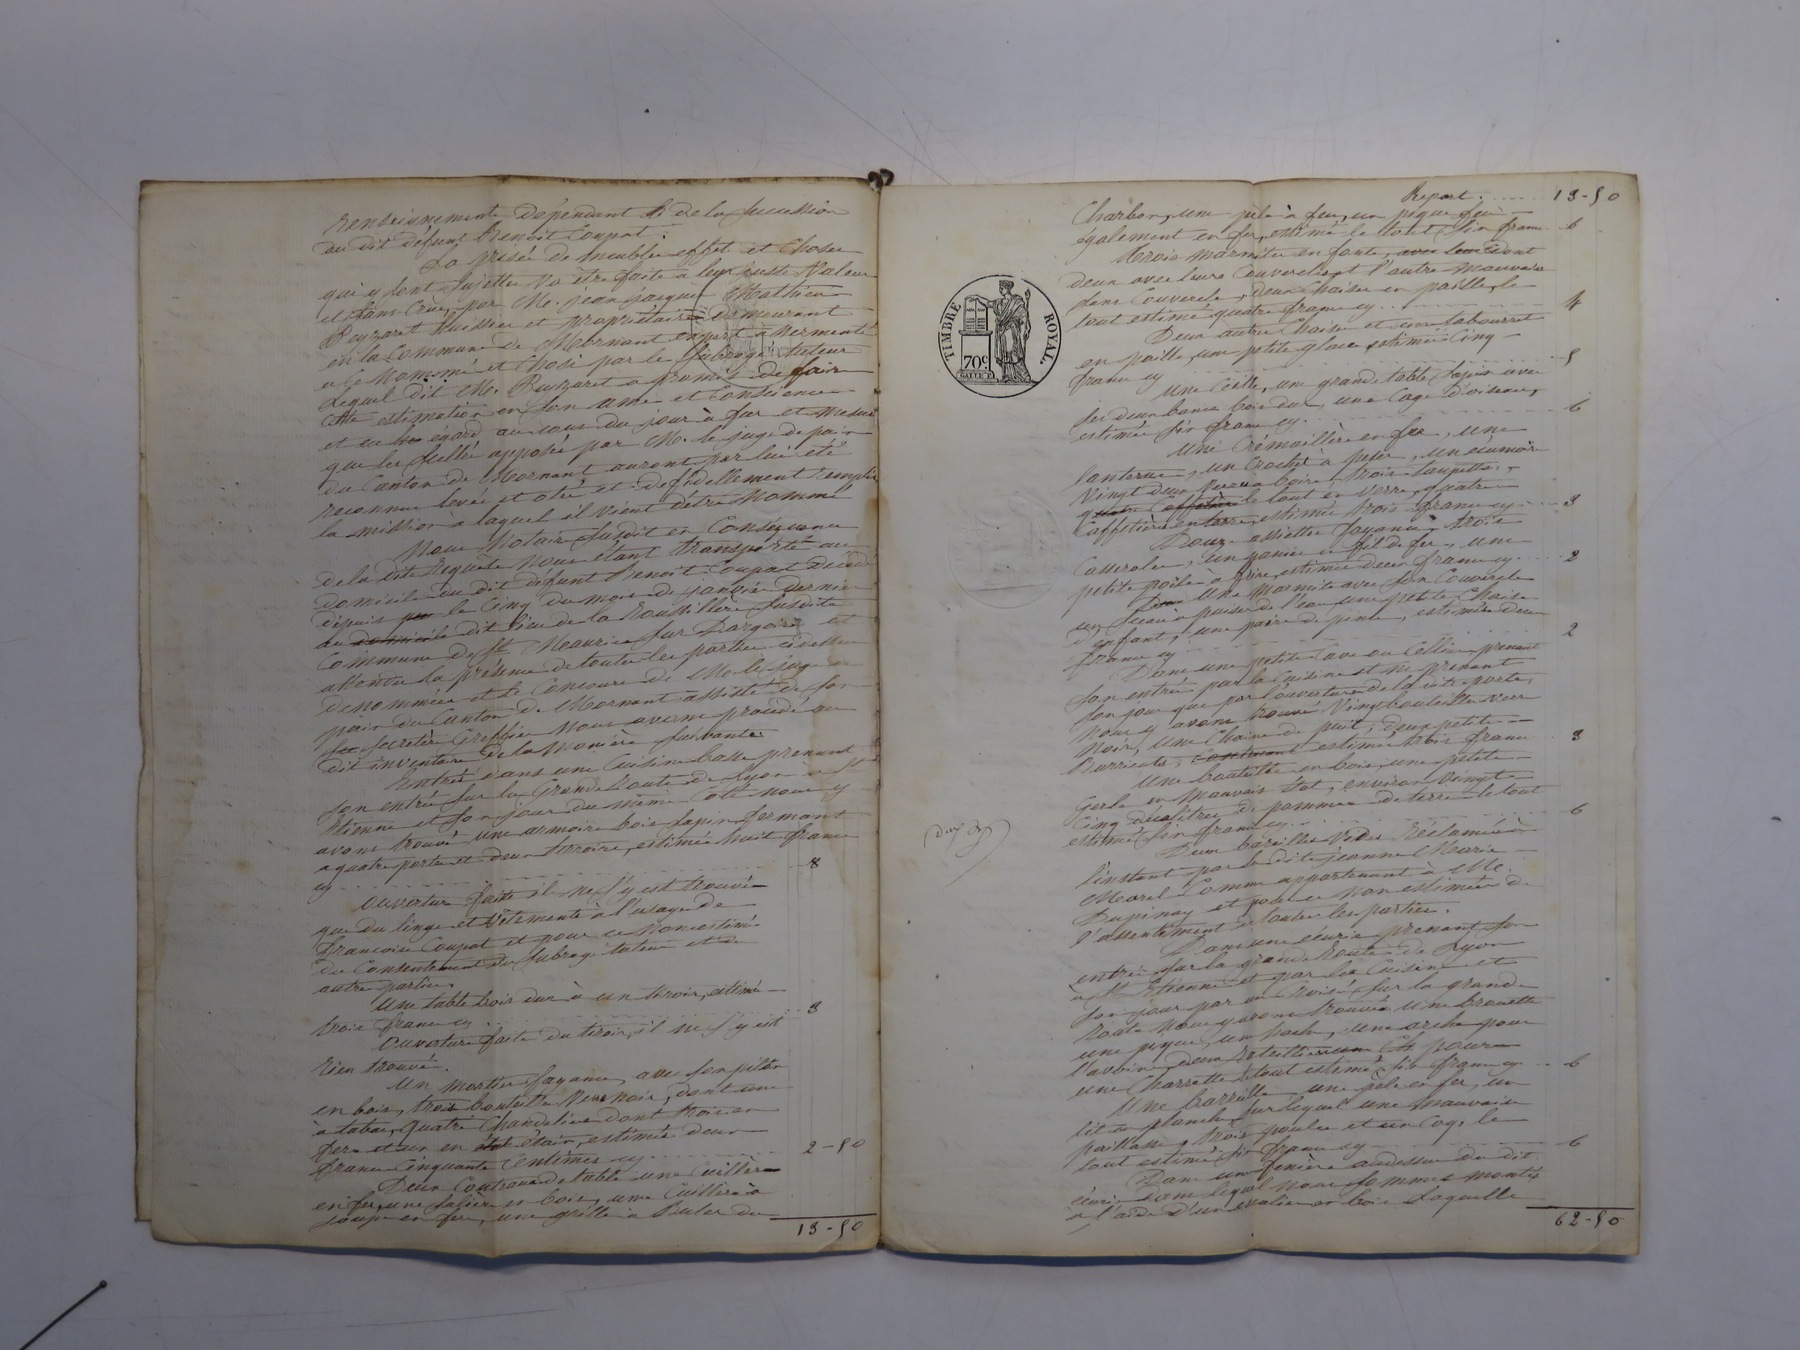 Renseignements dépendant de la Succession
du dit défunt Benoit Coupat.
La prisée de meubles effet et Choses
qui y sont Sujettes Va être faite à leur juste Valeur
et sans Crue, par Me. jean jacques Mathieu
Peyzaret huissier et propriétaire demeurant
en la Commune de Mornant expert à sermenté
a Ce Nommé et Choisi par le Subrogé tuteur
Lequel dit Me. Peyzaret a promis de faire
Cette estimation en Son ame et Conscience
et eu égard au cours du jour à fur et mesure
que les scellés apposés par M. le juge de paix
du Canton de Mornant auront par lui été
reconnus levés et otés et de fidellement remplir
la mission à laquel il vient d'être Nommé
Nous Notaire susdit en Conséquence
de la dite Requête Nous étant transporté au
domicile du dit défunt Benoit Coupat décédé
depuis le Cinq du mois de janvier dernier
au domicile dit lieu de la Roussillère Susdite
Commune de St Maurice Sur Dargoire et
attendu la présence de toutes les parties cidessus
dénommées et le Concours de M. le juge de
paix du Canton de Mornant assisté de Son
secretère Greffier Nous avons procédé au
dit inventaire de la Manière Suivante.
Entrés dans une Cuisine basse prenant
Son entrée sur la Grande Route de Lyon a St
Etienne et Son jour du même Coté Nous y
avons trouvé une armoire bois Sapin fermant
a quatre portes et deux tirroirs, estimée huit francs
cy 8
Ouverture faite il ne s'y est trouvé
que du linge et Vêtements à l'usage de
Françoise Coupat et pour ce Non estimé
du Consentement du Subrogé tuteur et des
autres parties.
Une table bois dur à un tiroir, estimée
trois francs cy 3
Ouverture faite du tiroir, il ne s'y est
Rien trouvé.
Un Mortier fayance, avec Son pilon
en bois, trois bouteilles Verre noir, dont une
à tabac, quatre Chandeliers dont trois en
fer et un en étain, estimés deux
francs Cinquante Centimes cy 2-50
Deux Couteaux de table une Cuillère
en fer, une Salière en bois, une Cuillère à
soupe en fer, une grille à Bruler du
13-50
Report 13-50
Charbon, une pèle à feu, un pique feu
également en fer, estimé le tout Six francs 6
Trois Marmites en fonte, dont
deux avec leurs Couvercles et l'autre Mauvaise
sans Couvercle, deux Chaises en paille, le
tout estimé quatre francs cy 4
Deux autres Chaises et un tabouret
en paille, une petite glace, estimés Cinq
francs cy 5
TIMBRE ROYAL.
70c.
Une Coille, un grande table Sapin avec
ses deux bancs bois dur, une Cage d'oiseaux,
estimés Six francs cy. 6
Une Crémaillère en fer, une
lanterne, un Crochet à peser, un écumoir
Vingt deux Verres à boire, trois Soupettes,
le tout en Verre, quatre
Caffetières en terre, estimés trois francs cy 3
Douze assiettes fayance, trois
Casseroles, un panier en fil de fer, une
petite poile à frire, estimés deux francs cy 2
Une Marmite avec Son Couvercle
un Seau à puiser de l'eau une petite Chaise
d'enfant, une paire de pince, estimés deux
francs cy 2
Dans une petite Cave ou Cellier prenant
Son entrée par la Cuisine et ne prenant
Son jour que par l'ouverture de la dite porte,
Nous y avons trouvé Vingt bouteilles Verre
Noir, une Chaine de puit, deux petits
Barricots, estimés trois francs 3
Une bouteille en bois, une petite
Gerle en Mauvais état, environ Vingt
Cinq décalitres de pommes de terre le tout
estimé Six francs cy. 6
Deux bareilles Vides Réclamées à
l'instant par la dite jeanne Marie
Morel Comme appartenant à Me.
Dupinay et pour ce Non estimées de
l'assentiment de toutes les parties.
Dans une écurie prenant son
entrée Sur la grande Route de Lyon
à St Etienne et par la Cuisine et
Son jour par un Croisé sur la grande
Route Nous y avons trouvé une brouette
une pioche, une arche pour
l'avoine, deux Rateliers Ct pour
une Charrette le tout estimé Six francs cy 6
Une barreille, une pèle en fer, un
lit à planches sur lequel une Mauvaise
paillasse, trois poules et un Coq, le
tout estimé Six francs cy 6
Dans un fenière au dessus du dit
écurie dans lequel nous sommes montés
à l'aide d'un escalier en bois laquelle
62-50